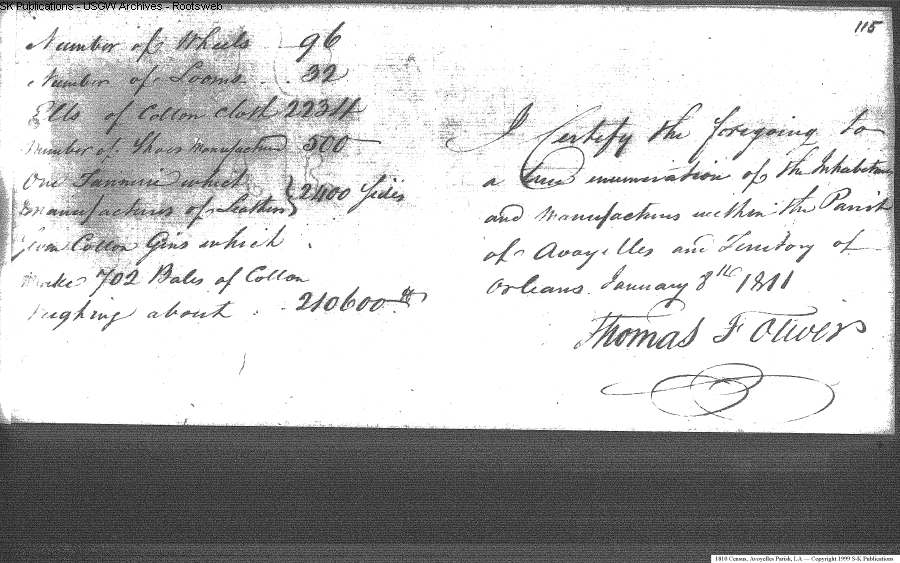 SK Publications - USGW Archives - Rootsweb
115
Number of Wheels 96
Number of Looms . . 32
Ells of Cotton Cloth 2234
Number of Shoes Manufactured 500
One Tannerie which
Manufactures of Leather } 2400 Sides
Cotton Gins which
Make 702 Bales of Cotton
Weighing about . . 210600 lb
I Certify the foregoing to
a true enumeration of the Inhabitans
and Manufactures within the Parish
of Avoyelles and Territory of
Orleans January 8th 1811
Thomas F Oliver
1810 Census, Avoyelles Parish, LA — Copyright 1999 S-K Publications